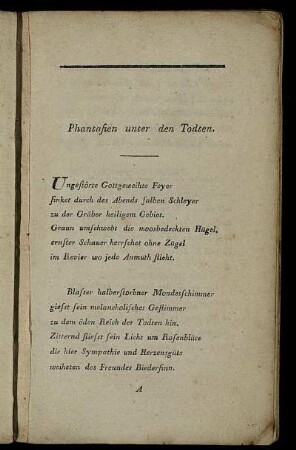 Phantasien unter den Todten.
Ungestörte Gottgeweihte Feyer
sinket durch des Abends falben Schleyer
zu der Gräber heiligem Gebiet.
Graun umschwebt die moosbedeckten Hügel,
ernster Schauer herrschet ohne Zügel
im Revier wo jede Anmuth flieht.
Blasser halberstorbner Mondesschimmer
giesst sein melancholisches Geflimmer
zu dem öden Reich der Todten hin.
Zitternd fliesst sein Licht um Rasenblüte
die hier Sympathie und Herzensgüte
weiheten des Freundes Biedersinn.
A